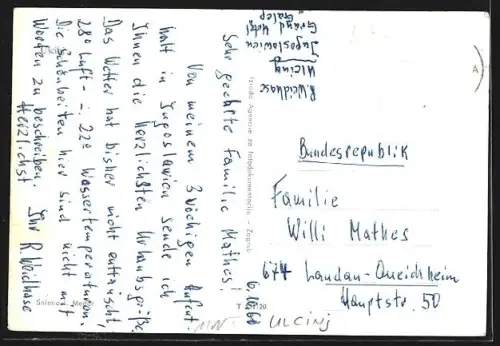 R. Weidhase
Ulcinj
Jugoslawien
Grand Hotel
Galeb
Sehr geehrte Familie Mathes!
Von meinem 3wöchigen Aufent
halt in Jugoslawien sende ich
Ihnen die herzlichsten Urlaubsgrüße.
Das Wetter hat bisher nicht enttäuscht,
28° Luft- : 22° Wassertemperaturen.
Die Schönheiten hier sind nicht mit
Worten zu beschreiben. Ihr R. Weidhase
Herzlichst
Izrada: Agencija za fotodokumentaciju - Zagreb
Bundesrepublik
Familie
Willi Mathes
674 Landau-Queichheim
Hauptstr. 50
ULCINJ
A